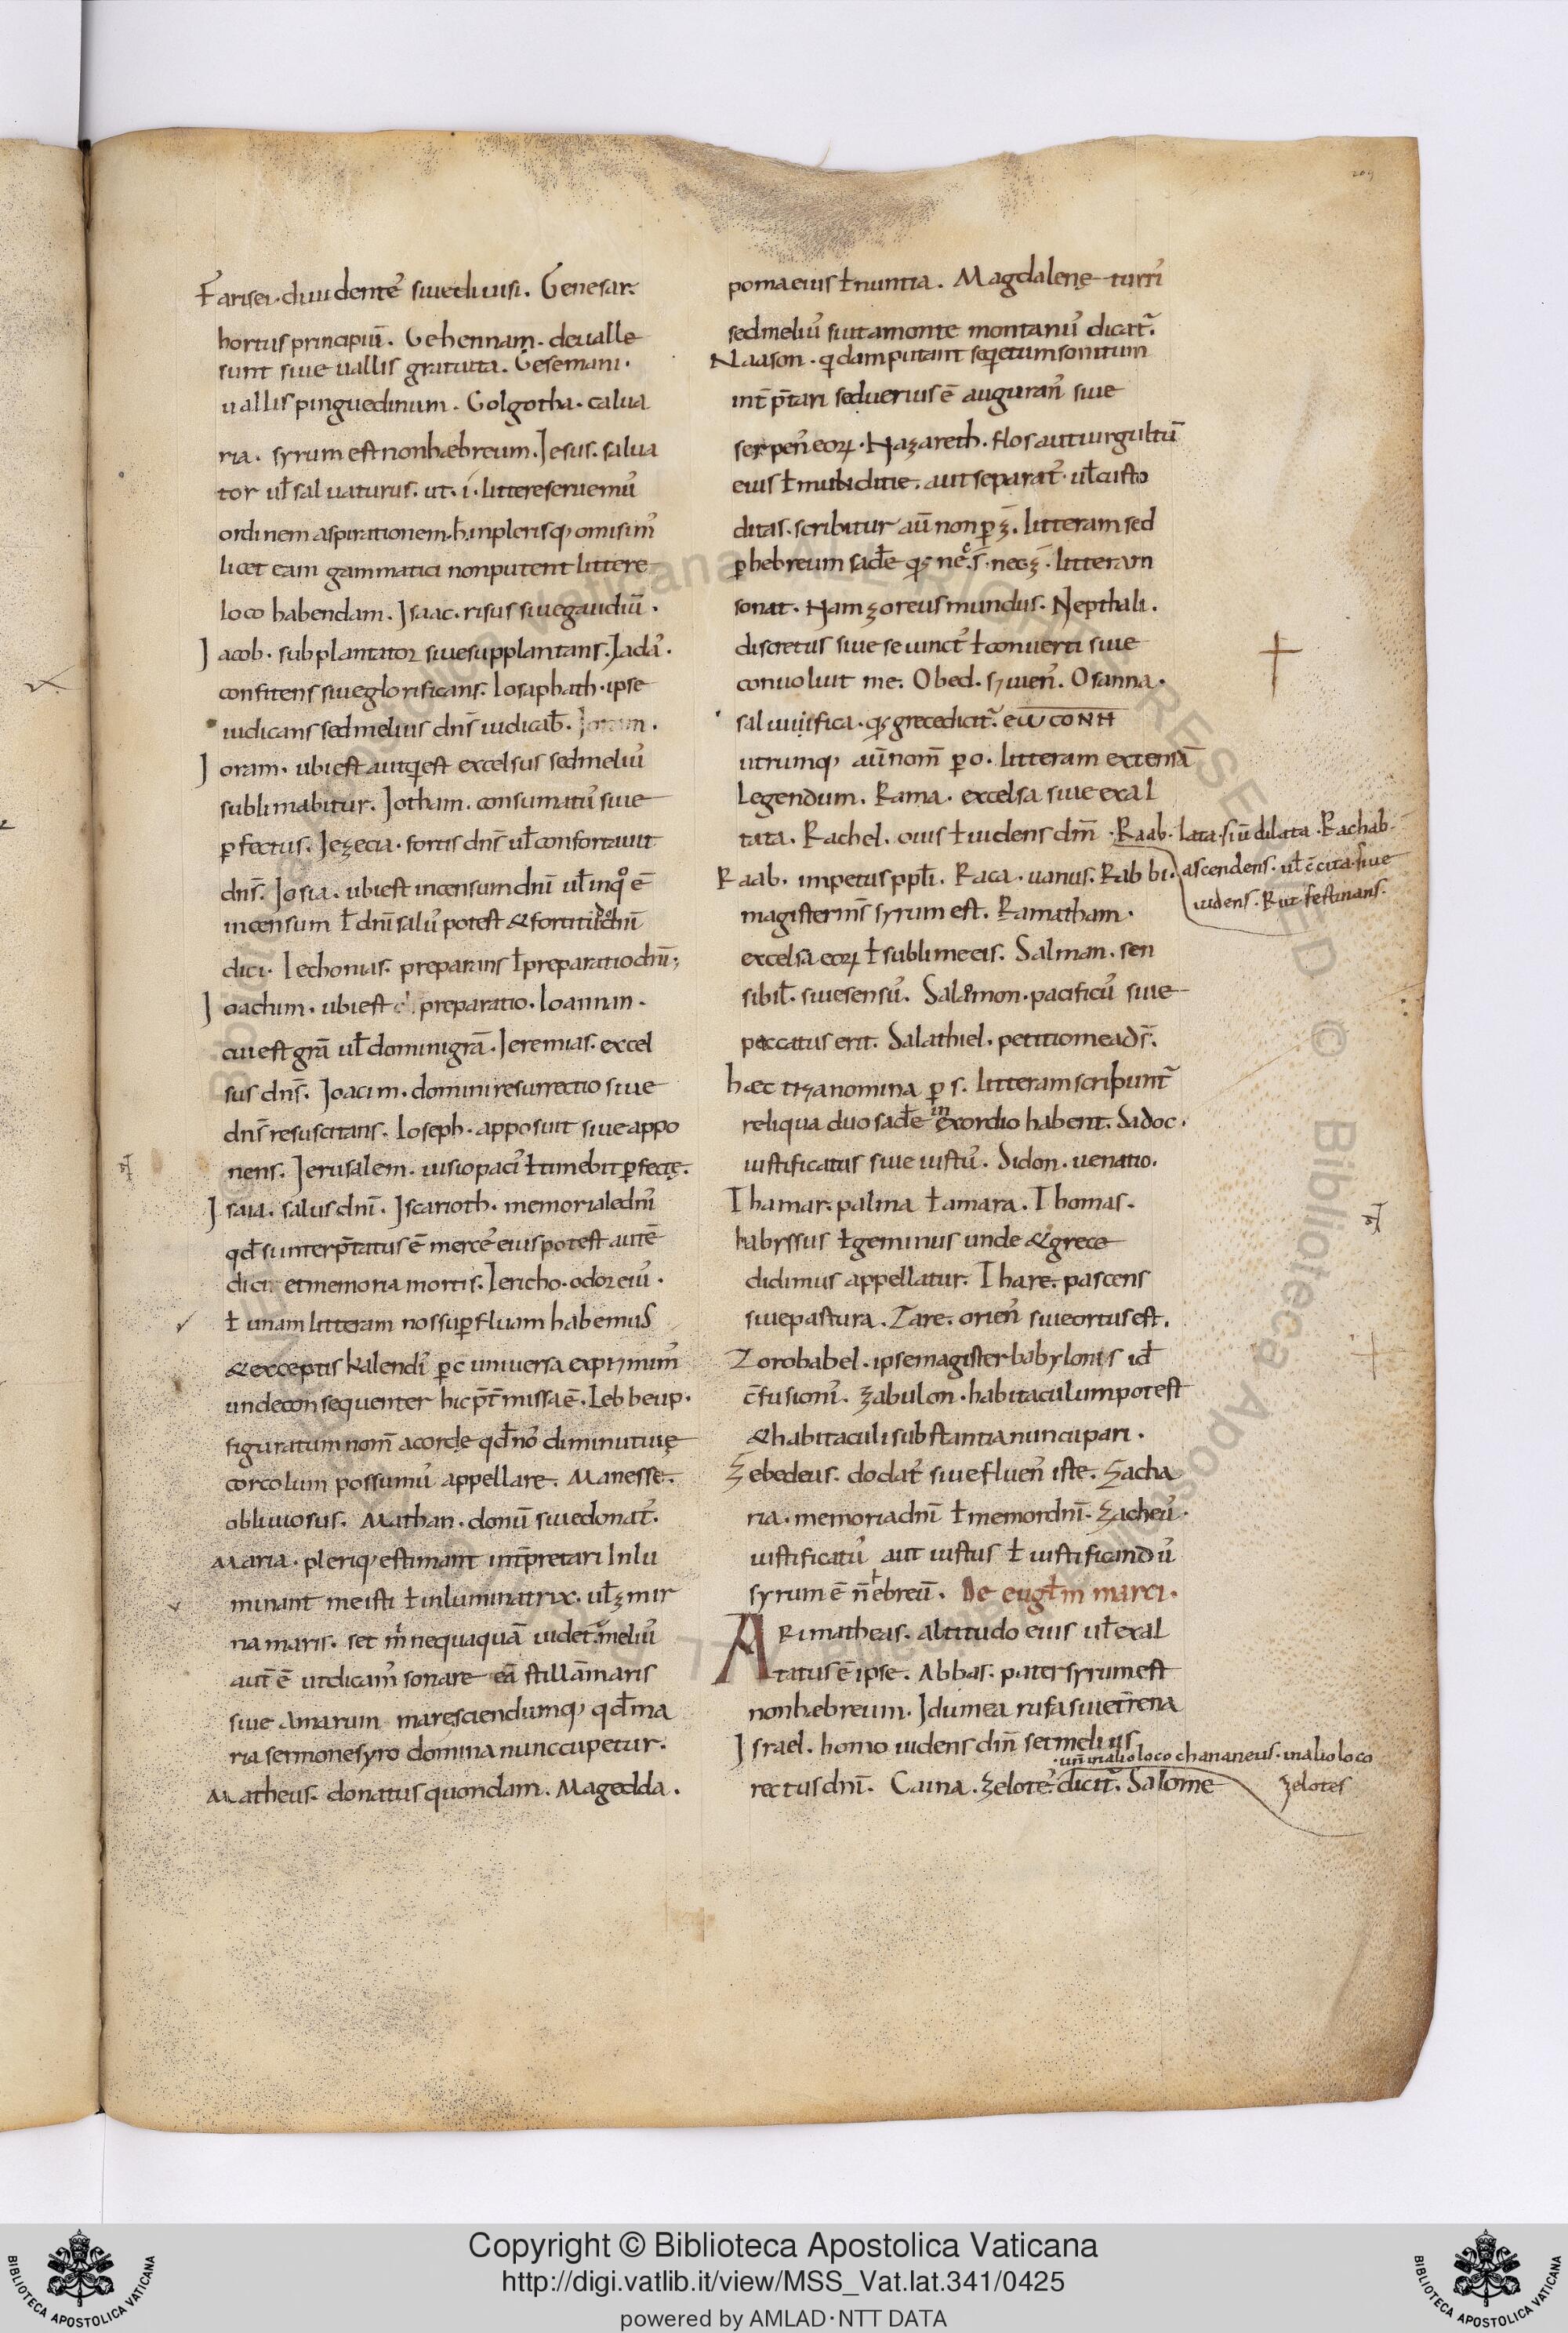 Farisei. diuidente᷒ siuediuisi. Genesar.
hortus principiū. Gehennam. deualle
sunt siue uallis gratuita. Gesemani.
uallispinguedinum. Golgotha. calua
ria. syrum estnonhæbreum. Iesus. salua
tor uł saluaturus. ut. i. littereseruemu᷒
ordinem aspirationem.h.inplerisq; omisim᷒
licet eam gammatici nonputent littere
loco habendam. Isaac. risus siuegaudiū.
Iacob. subplantator siuesupplantans. Iada᷒.
confitens siueglorificans. Iosaphath. ipse
iudicans sedmelius dn̄s iudicab̄.
Ioram. ubiest autq̄est excelsus sedmeliu᷒
sublimabitur. Iotham. consumatu᷒ siue
ꝑfectus. Iezecia. fortis dn̄s uł confortauit
dn̄s. Iosia. ubiest incensum dn̄i uł inqͦ ē
incensum ł dn̄i salu᷒ potest &fortitudͦ dn̄i
dici. Iechonias. preparans ł preparatiodn̄i;
Ioachim. ubiest preparatio. Ioannan.
cuiestgrā uł dominigrā. Ieremias. excel
sus dn̄s. Ioacim. dominiresurrectio siue
dn̄s resuscitans. Ioseph. apposuit siue appo
nens. Ierusalem. uisiopaci᷒ ł timebit ꝑfectę.
Isaia. salus dn̄i. Iscarioth. memorialedni᷒
qđ si interp̄tatus ē merce᷒ eiuspotest autē
dici etmemoria mortis. Iericho. odor eiu᷒.
ł unam litteram nos suꝑfluam habemus
&exceptis kalendi᷒ ꝑ c uniuersa exprimim᷒
undeconsequenter hic p̄t̄missa ē. Lebbeuſ.
figuratum nom̄ acorde qđ no᷒ diminutiuę
corcolum possumu᷒ appellare. Manesse.
obliuiosus. Mathan. donū siuedonat᷒.
Maria. pleriq; estimant int̄pretari Inlu
minant meisti ł inluminatrix. uł zmir
na maris. set m̄ nequaquā uidet᷒. meliu᷒
aut ē utdicam᷒ sonare eā stillāmaris
siue amarum maresciendumq; qđ ma
ria sermonesyro domina nunccupetur.
Matheus. donatus quondam. Magedda.
pomaeius ł nuntia. Magdalenę turri᷒
sedmeliu᷒ sicutamonte montaniu᷒ dicit᷒.
Naason. qͥdamputant seqͥetumsonitum
int̄p̄tari seduerius ē auguran᷒ siue
serpen᷒ eoꝝ. Nazareth. flos autuirgultū
eius ł munditie. aut separat᷒. uł custo
ditas. scribitur aū non ꝑ z. litteram sed
ꝑ hebreum sađe qꝫ nec᷒. s. nec z. litteram
sonat. Namzoreus mundus. Nepthali.
discretus siue seiunct᷒ ł conuerti siue
conuoluit me. Obed. seruien᷒. Osanna.
saluuifica. qꝫ grecedicit᷒. εωcoΝΗ
utrumq; aū nom̄ ꝑ o. litteram extensā
legendum. Rama. excelsa siue exal
tata. Rachel. ouis ł uidens dm̄ . Raab. lata. siū dilata. Rachab.
ascendens. uł c̄cita. siue
uidens. Rut festinans.
Raab. impetus pp̄łi. Raca. uanus. Rabbi.
magistermīs syrum est. Ramatham.
excelsa eoꝝ ł sublime eis. Salman. sen
sibił. siuesensu᷒. Salomon. pacificu᷒ siue
peccatus erit. Salathiel. petitiomead̄s.
hæc trianomina ꝑ s. litteramscribunt᷒
reliqua duo sađe in exordio habent. Sadoc.
iustificatus siue iustu᷒. Sidon. uenatio.
Thamar. palma ł amara. Thomas.
habyssus ł geminus unde &grece
didimus appellatur. Thare. pascens
siuepastura. Zare. orien᷒ siueortusest.
Zorobabel. ipsemagisterbabylonis iđ
c̄fusioni᷒. Zabulon. habitaculumpotest
&habitaculisubstantianuncupari.
Zebedeus. dodat᷒ siuefluen᷒ iste. Zacha
ria. memoriadn̄i ł memordn̄i. Zacheu᷒.
iustificatu᷒ aut iustus ł iustificandu᷒
syrum ē n̄ ebreū. De eugłm marci.
Arimatheas. altitudo eius uł exal
tatus ē ipse. Abbas. pater syrumest
nonhæbreum. Idumea rufasiuet̄rena
Israel. homo uidens dm̄ setmelius
. un̄ inalioloco chananeus. inalioloco
zelotes
rectusdn̄i. Cana. zelote᷒. dicit᷒. Salome
Copyright © Biblioteca Apostolica Vaticana
http://digi.vatlib.it/view/MSS_Vat.lat.341/0425
powered by AMLAD·NTT DATA